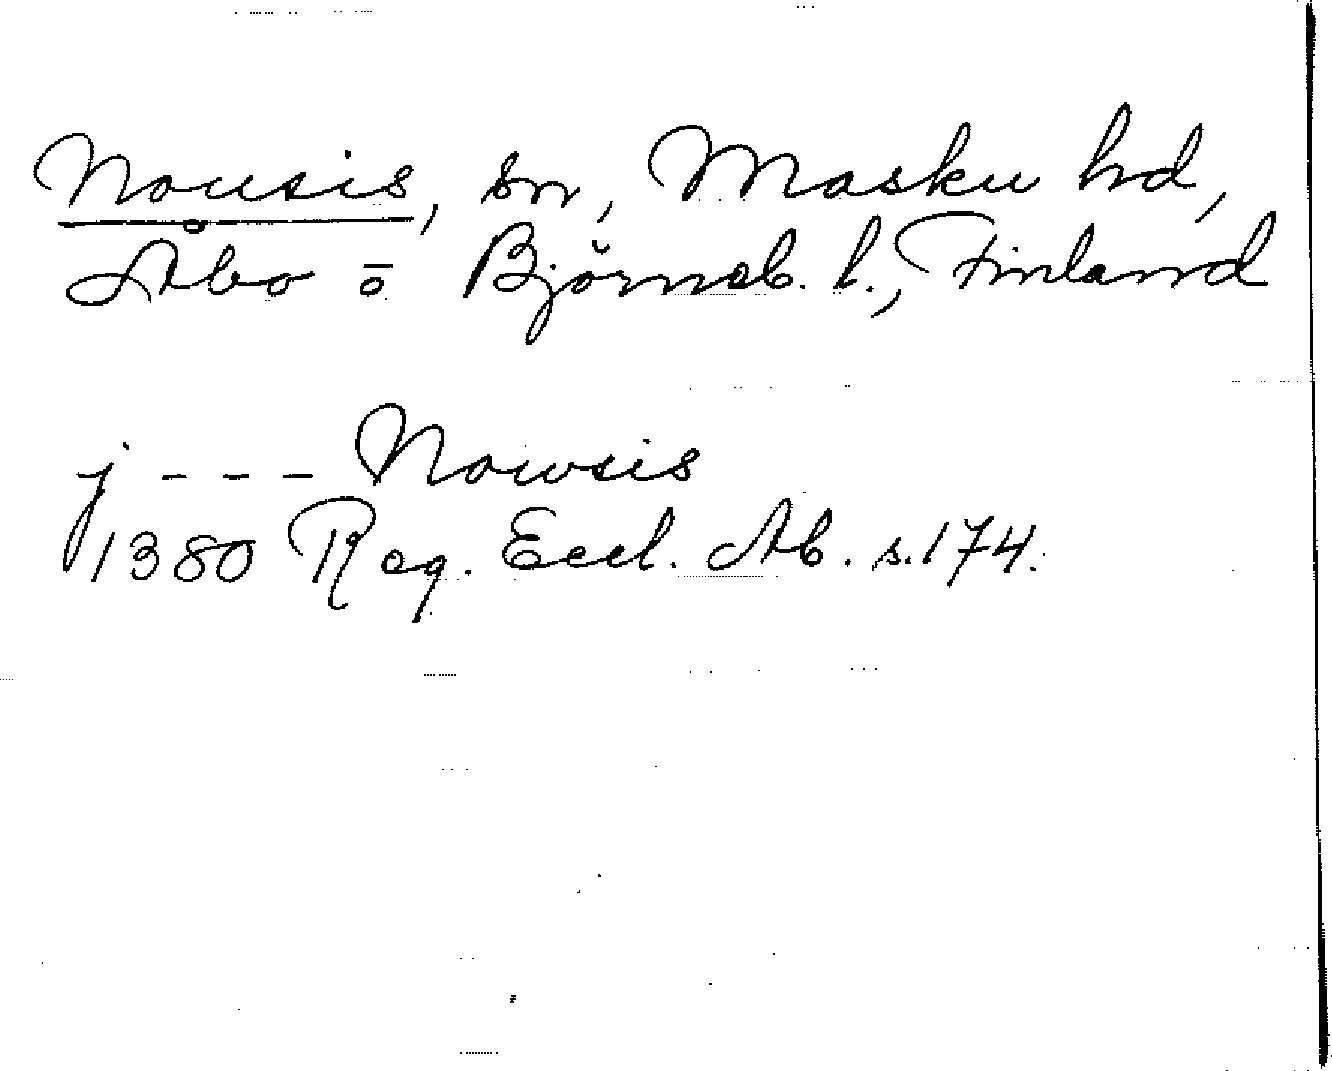 Nousis, sn, Masku hd,
Åbo ō Björneb. l., Finland
j - - - Nowsis
1380 Reg. Eccl. Ab. s. 174.